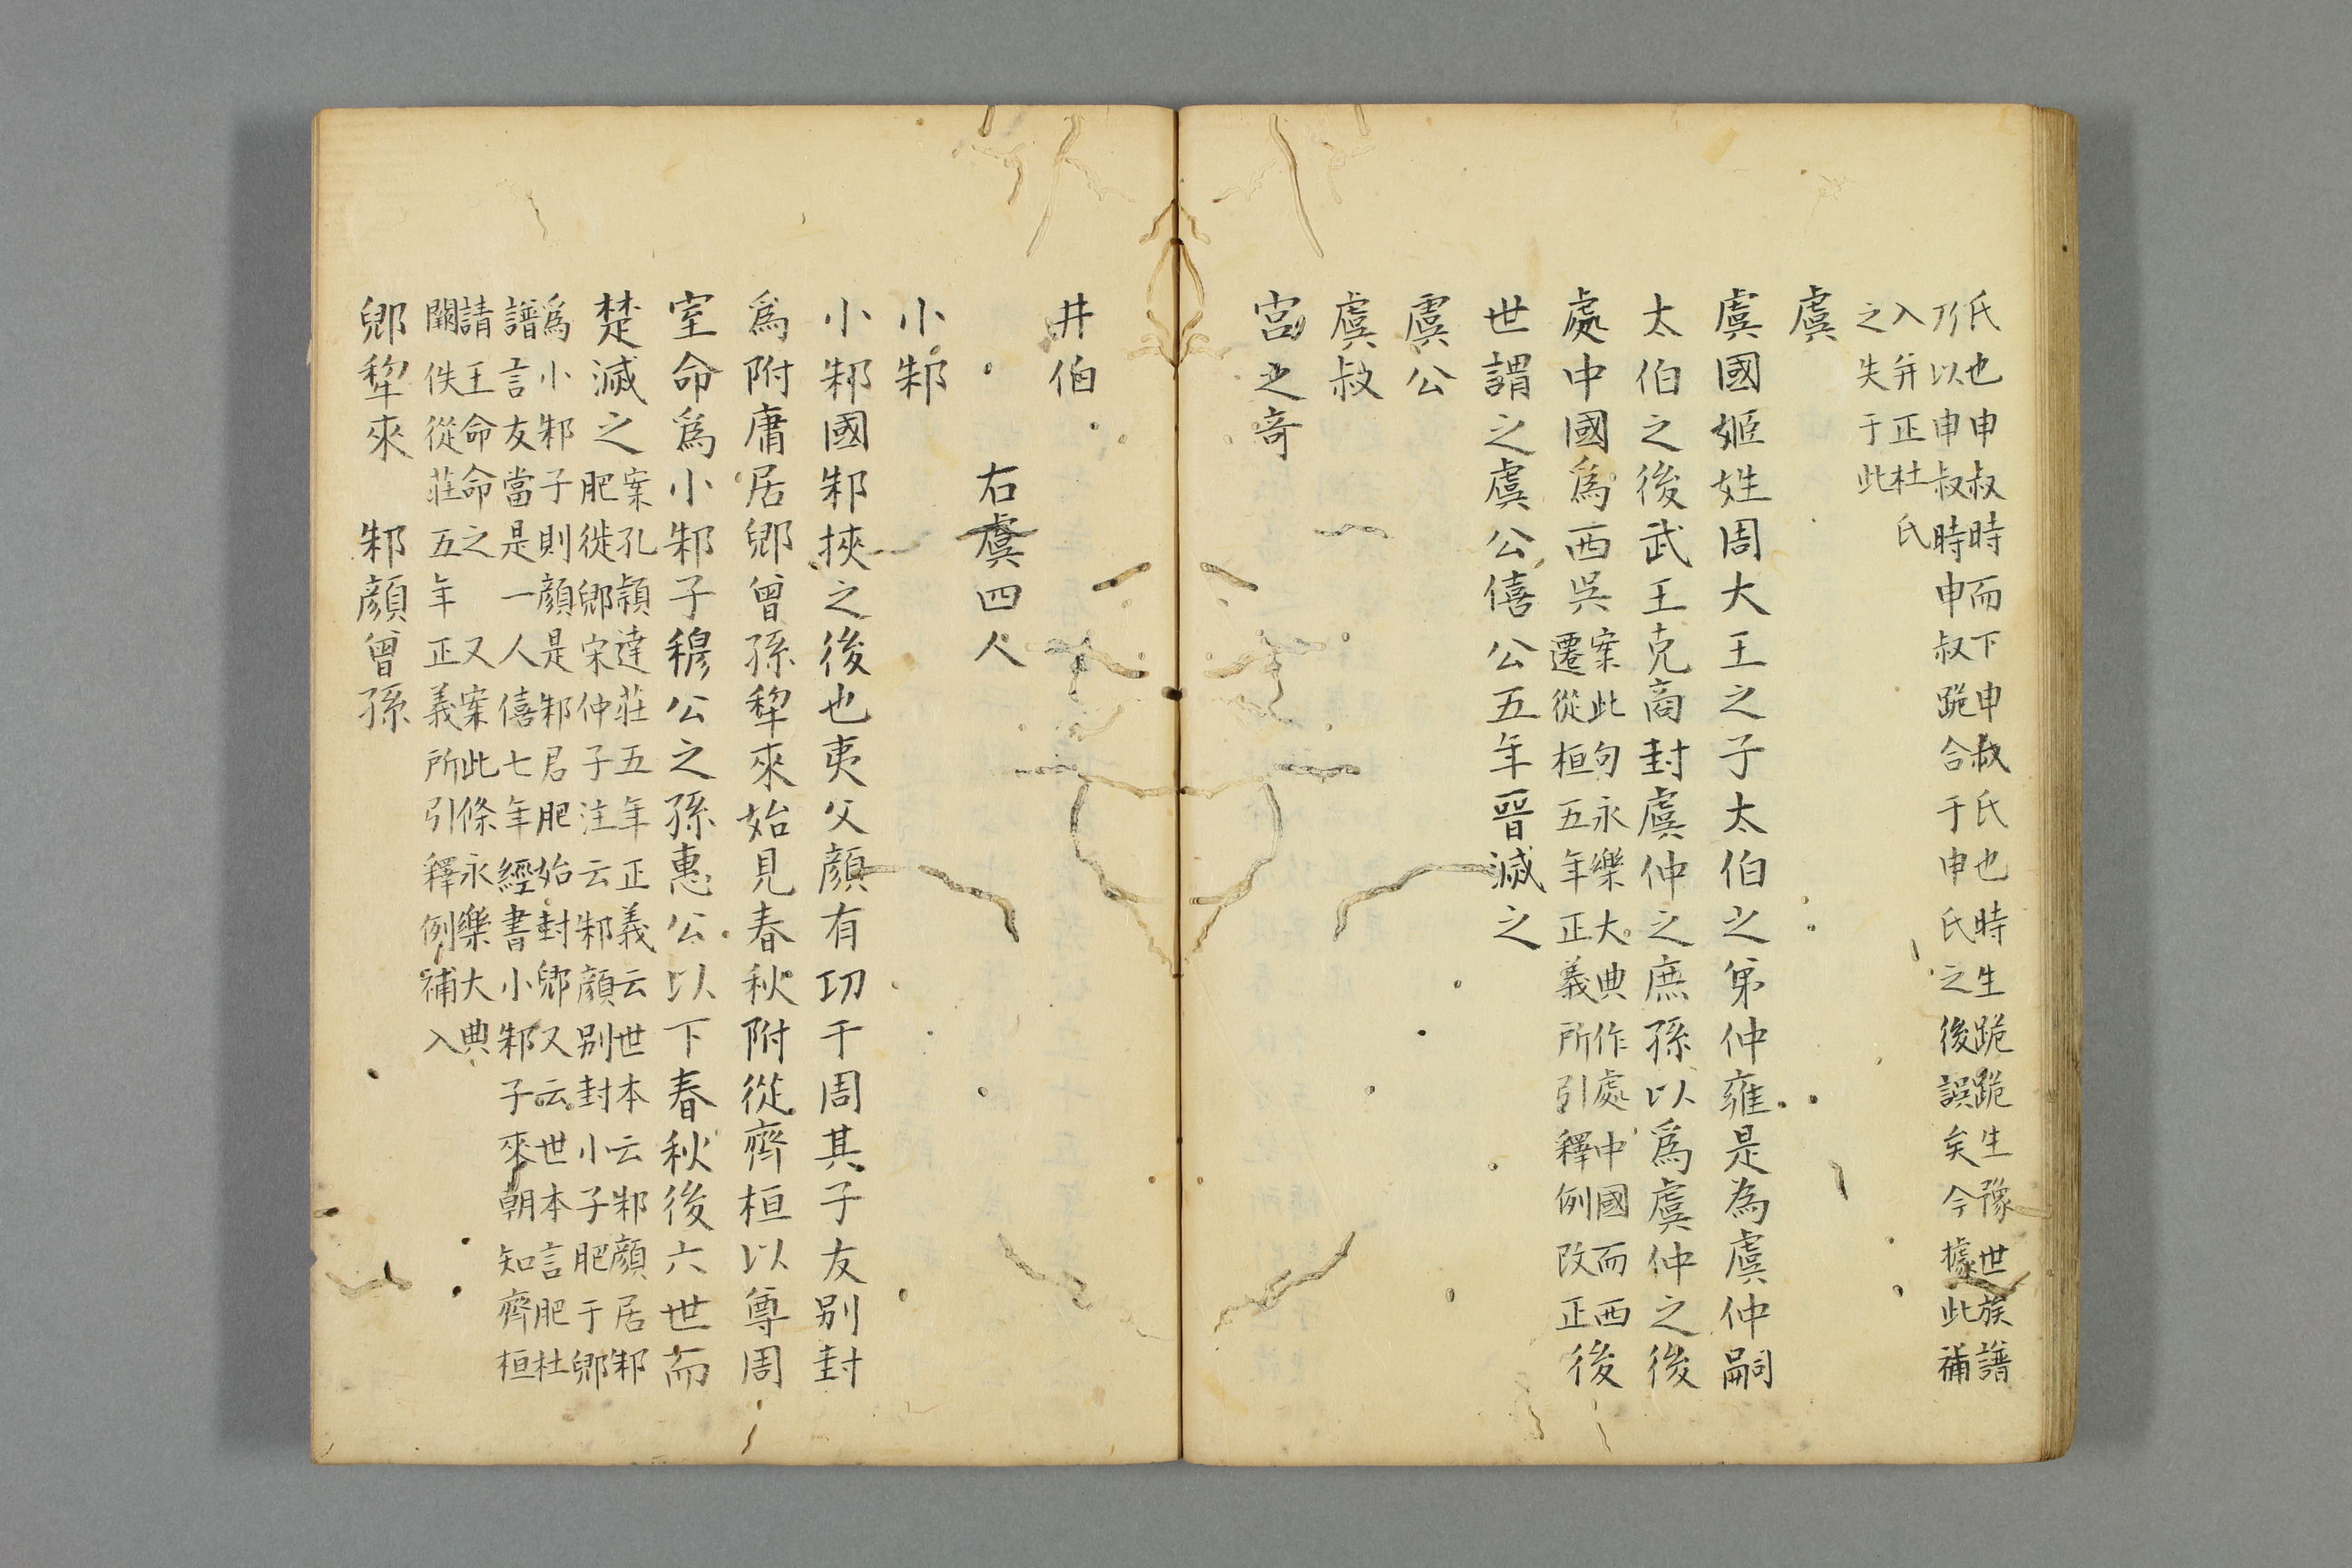 氏也申叔時而下申叔氏也時生跪跪生豫世族譜
乃以申叔時申叔跪合于申氏之後誤矣今據此補
入并正杜氏
之失于此
虞
虞國姬姓周大王之子太伯之弟仲雍是為虞仲嗣
太伯之後武王克商封虞仲之庶孫以爲虞仲之後
處中國爲西吳案此句永樂大典作處中國而西遷從桓五年正義所引釋例改正後
世謂之虞公僖公五年晉滅之
虞公
虞叔
宮之奇
井伯
右虞四人
小邾
小邾國邾挾之後也夷父顔有功于周其子友别封
爲附庸居郳曾孫犂來始見春秋附從齊桓以尊周
室命爲小邾子穆公之孫惠公以下春秋後六世而
楚滅之案孔穎達莊五年正義云世本云邾顔居邾肥徙郳宋仲子注云邾顔别封小子肥于郳
爲小邾子則顔是邾君肥始封郳又云世本言肥杜
譜言友當是一人僖七年經書小邾子來朝知齊桓
請王命命之又案此條永樂大典
闕佚從莊五年正義所引釋例補入
郳犂來 邾顔曾孫